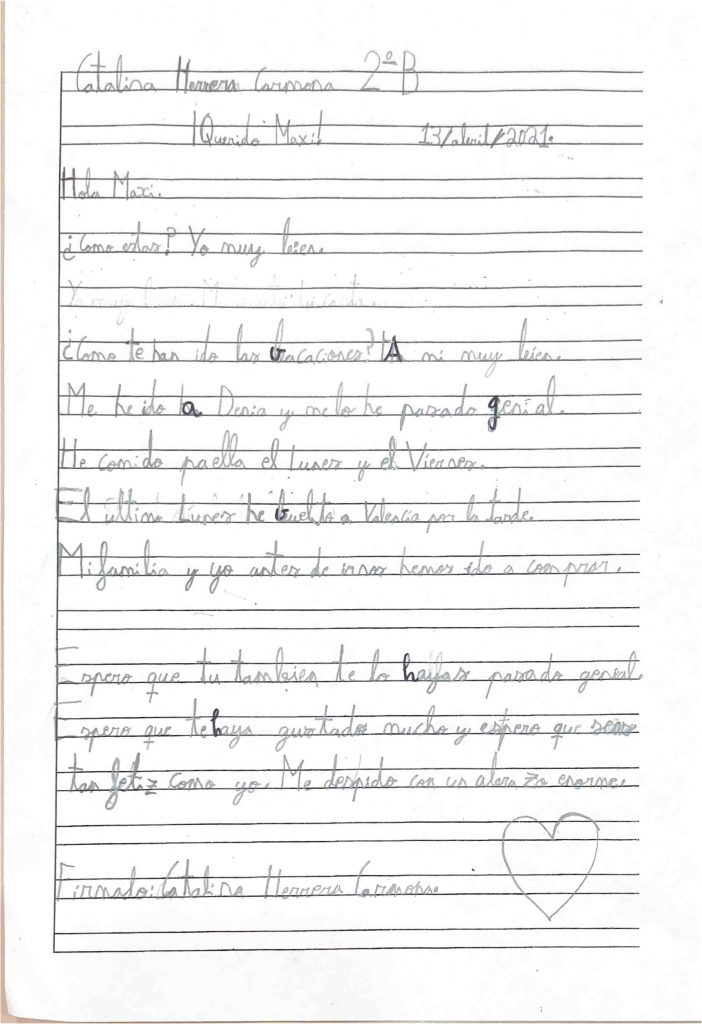 Catalina Herrera Carmona 2º B
¡Querido Maxi! 13/abril/2021.
Hola Maxi.
¿Como estas? Yo muy bien.
Yo muy
¿Como te han ido las vacaciones? A mi muy bien.
Me he ido a Denia y me lo he pasado genial.
He comido paella el Lunes y el Viernes.
El último Lunes he vuelto a Valencia por la tarde.
Mi familia y yo antes de irnos hemos ido a comprar.
Espero que tu tambien te lo hayas pasado genial.
Espero que te haya gustado mucho y espero que seas
tan feliz como yo. Me despido con un abrazo enorme.
Firmado: Catalina Herrera Carmona.